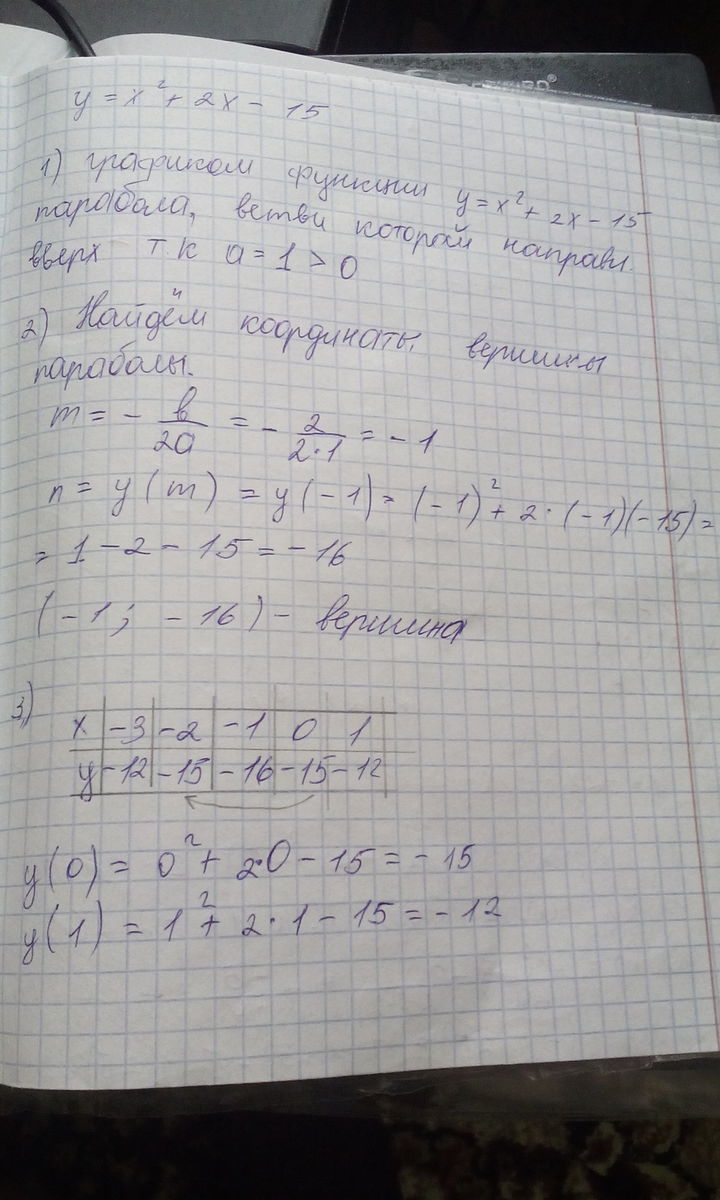 y = x² + 2x - 15
1) графиком функции y = x² + 2x - 15
парабола, ветви которой направл.
вверх т.к a = 1 > 0
2) Найдём координаты вершины
параболы.
m = - в/2a = - 2/2·1 = - 1
n = y(m) = y(-1) = (-1)² + 2·(-1)(-15) =
= 1 - 2 - 15 = - 16
(-1; -16) - вершина
3)
x | -3 | -2 | -1 | 0 | 1
y | -12 | -15 | -16 | -15 | -12
y(0) = 0² + 2·0 - 15 = - 15
y(1) = 1² + 2·1 - 15 = - 12